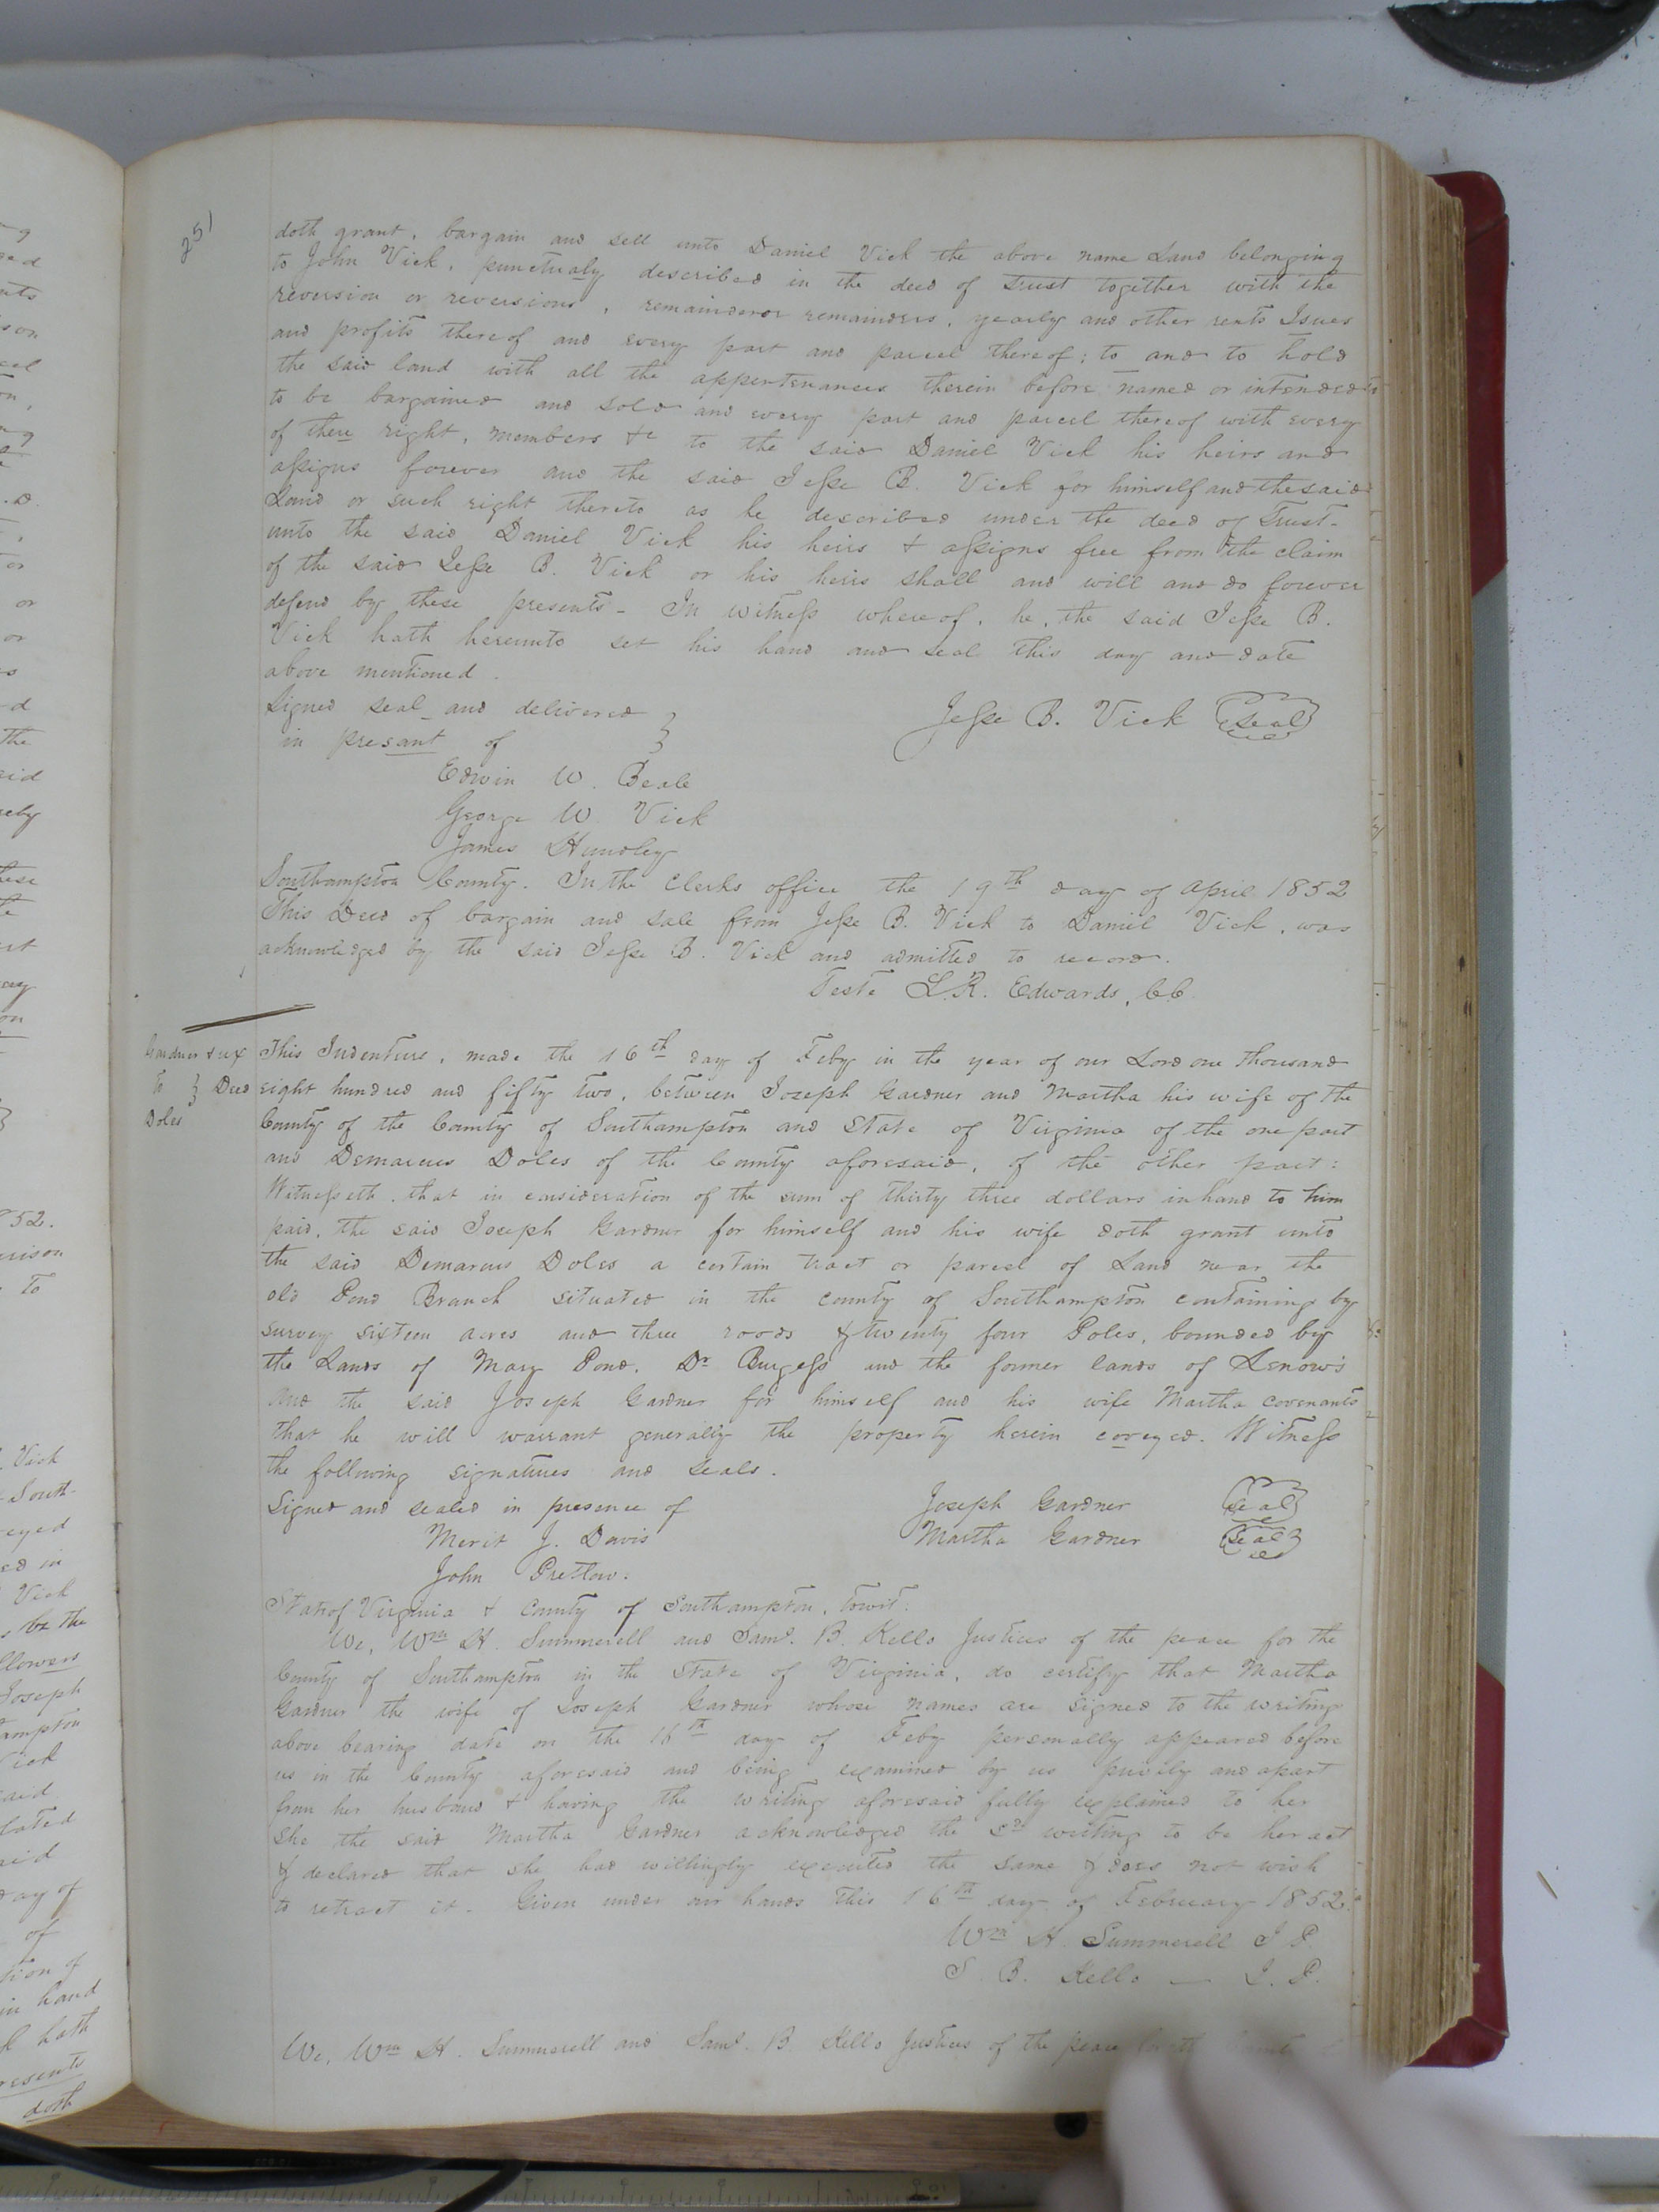 251
doth grant, bargain and sell unto Daniel Vick the above name Land belonging
to John Vick, punctualy described in the deed of Trust together with the
reversion or reversions, remainder or remainders, yearly and other rents Isues
and profits thereof and every part and parcel thereof; to and to hold
the said land with all the appertenances therein before named or intended
to be bargained and sold and every part and parcel thereof with every
of there right, members &c to the said Daniel Vick his heirs and
assigns forever and the said Jesse B. Vick for himself and the said
Land or such right thereto as he described under the deed of Trust-
unto the said Daniel Vick his heirs & assigns free from the claim
of the said Jesse B. Vick or his heirs shall and will and do forever
defend by these presents- In witness whereof, he, the said Jesse B.
Vick hath hereunto set his hand and seal this day and date
above mentioned.
Signed seal and delivered }
in presant of
Jesse B. Vick Seal
Edwin W. Beale
George W. Vick
James Hundley
Southampton County. In the Clerks office the 19th day of April 1852
This Deed of bargain and sale from Jesse B. Vick to Daniel Vick, was
acknowledged by the said Jesse B. Vick and admitted to record.
Teste L.R. Edwards, CC
Gardner & ux
to } Deed
Doles
This Indenture, made the 16th day of Feby in the year of our Lord one thousand
eight hundred and fifty two, between Joseph Gardner and Martha his wife of the
County of the County of Southampton and State of Virginia of the one part
and Demarcus Doles of the County aforesaid, of the other part:
Witnesseth, that in consideration of the sum of thirty three dollars in hand to him
paid, the said Joseph Gardner for himself and his wife doth grant unto
the said Demarcus Doles a certain tract or parcel of Land near the
old Pond Branch situated in the county of Southampton containing by
survey sixteen acres and three roods & twenty four Poles, bounded by
the Lands of Mary Pond, Dr Burgess and the former lands of Lenow's
and the said Joseph Gardner for himself and his wife Martha covenants
that he will warrant generally the property herein coveyed. Witness
the following signatures and seals.
Signed and sealed in presence of
Joseph Gardner Seal
Martha Gardner Seal
Merit J. Davis
John Pretlow.
State of Virginia & County of Southampton, towit:
We, Wm H. Summerell and Saml. B. Kello Justices of the peace for the
County of Southampton in the State of Virginia, do certify that Martha
Gardner the wife of Joseph Gardner whose names are signed to the writing
above bearing date on the 16th day of Feby personally appeared before
us in the County aforesaid and being examined by us privily and apart
from her husband & having the writing aforesaid fully explained to her
She the said Martha Gardner acknowledged the sd writing to be her act
& declared that she had willingly executed the same & does not wish
to retract it. Given under our hands this 16th day of February 1852.
Wm H. Summerell J P.
S. B. Kello — J. P.
We, Wm H. Summerell and Saml. B. Kello Justices of the peace